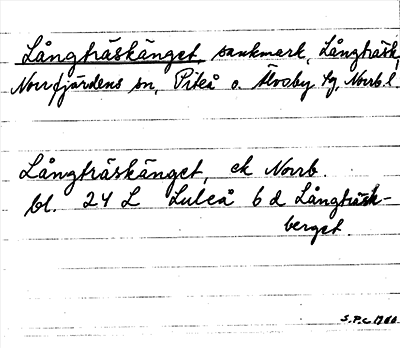 Långträskänget, sankmark, Långträsk,
Norrfjärdens sn, Piteå o. Älvsby tg, Norrb. l.
Långträskänget, ek Norrb.
bl. 24 L Luleå 6 d Långträsk-
berget.